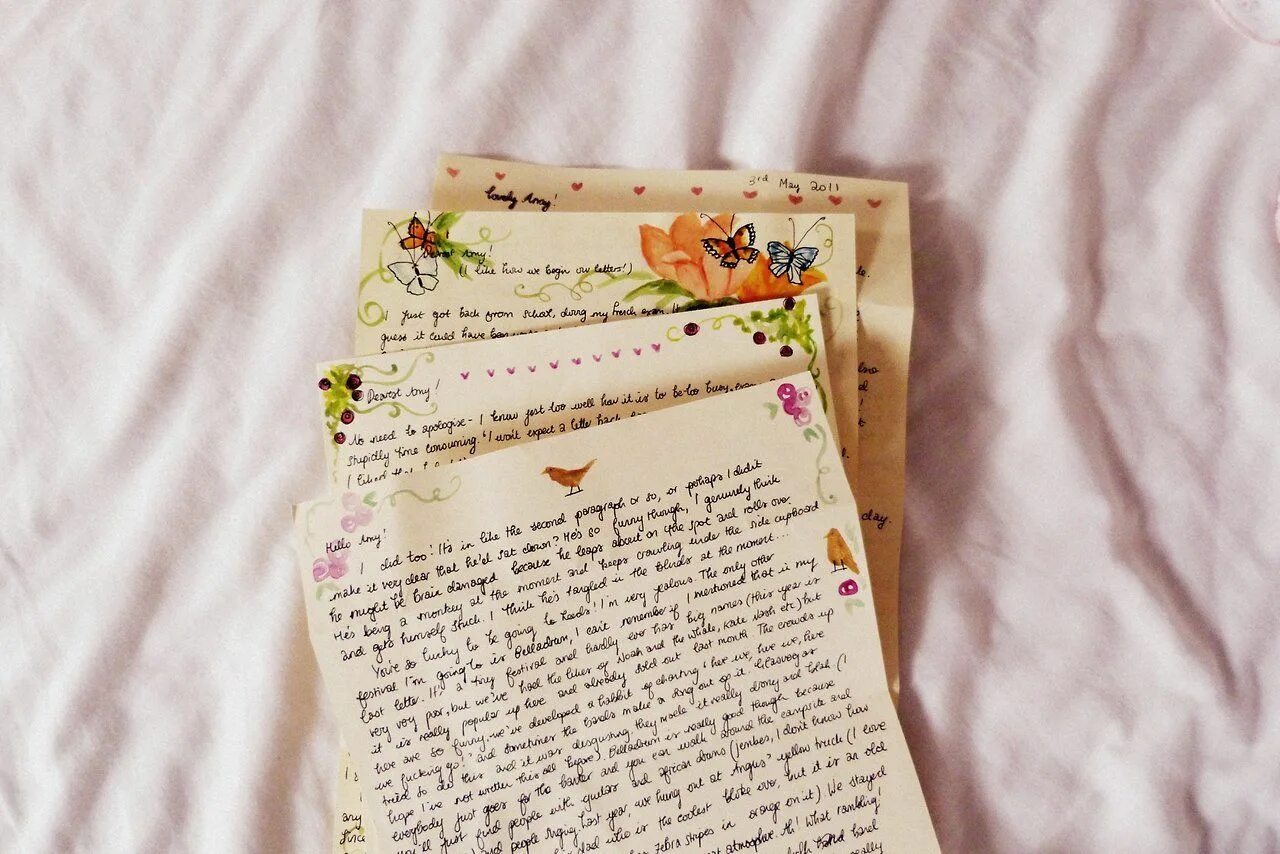 3rd May 2011
Lovely Amy!
Dearest Amy!
(I like how we begin our letters!)
I just got back from school, doing my French exam. It
guess it could have been
Dearest Amy!
No need to apologise - I know just too well how it is to be too busy, exams
stupidly time consuming. I won't expect a letter back
I liked that
day.
Hello Amy!
I did too! It's in like the second paragraph or so, or perhaps I didn't
make it very clear that he'd sat down? He's so funny though, I genuinely think
he might be brain damaged because he leaps about on the spot and rolls over.
He's being a monkey at the moment and keeps crawling under the side cupboard
and gets himself stuck. I think he's tangled in the blinds at the moment...
You're so lucky to be going to Leeds! I'm very jealous. The only other
festival I'm going to is Belladrum, I can't remember if I mentioned that in my
last letter. It's a tiny festival and hardly ever has big names (this year is
very very poor, but we've had the likes of Noah and the Whale, Kate Nash etc) but
it is really popular up here and already sold out last month. The crowds up
here are so funny, we've developed a habbit of chanting 'here we, here we, here
we fucking go!' and sometimes the bands make a song out of it. Glasvegas
tried to do this and it was disgusting, they made it really droney and blah. (I
hope I've not written this all before). Belladrum is really good though because
everybody just goes for the banter and you can walk around the campsite and
you'll just find people with guitars and african drums (jembes, I don't know how
and people singing. Last year, we hung out at Angus' yellow truck (I love
dad who is the coolest bloke ever, but it is an old
zebra stripes in orange on it) We stayed
atmosphere. Ah! What rambling!
really